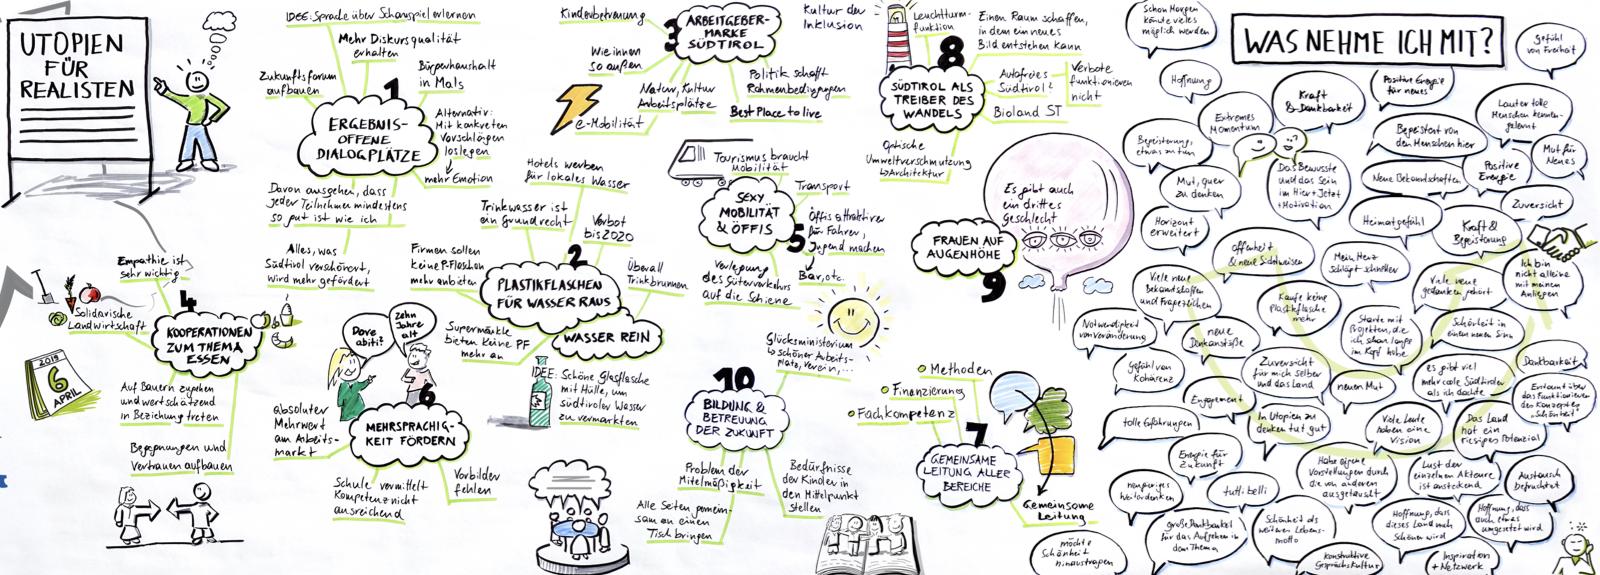 UTOPIEN
FÜR
REALISTEN
IDEE: Sprache über Schauspiel erlernen
Mehr Diskursqualität
erhalten
Zukunftsforum
aufbauen
1
Bürgerhaushalt
in Mals
ERGEBNIS-
OFFENE
DIALOGPLÄTZE
Alternativ:
Mit konkreten
Vorschlägen
loslegen
mehr Emotion
Davon ausgehen, dass
jeder Teilnehmer mindestens
so gut ist wie ich
Alles, was
Südtirol verschönert,
wird mehr gefördert
2
PLASTIKFLASCHEN
FÜR WASSER RAUS
WASSER REIN
Hotels werben
für lokales Wasser
Trinkwasser ist
ein Grundrecht
Verbot
bis 2020
Firmen sollen
keine P-Flaschen
mehr anbieten
Überall
Trinkbrunnen
Supermärkte
bieten keine PF
mehr an
IDEE: Schöne Glasflasche
mit Hülle, um
südtiroler Wasser
zu vermarkten
3
ARBEITGEBER-
MARKE
SÜDTIROL
Kinderbetreuung
Wie innen
so außen
Natur, Kultur
Arbeitsplätze
e-Mobilität
Politik schafft
Rahmenbedingungen
Best Place to live
Kultur der
Inklusion
4
KOOPERATIONEN
ZUM THEMA
ESSEN
Empathie ist
sehr wichtig
Solidarische
Landwirtschaft
2019
6
APRIL
Auf Bauern zugehen
und wertschätzend
in Beziehung treten
Begegnungen und
Vertrauen aufbauen
5
SEXY
MOBILITÄT
& ÖFFIS
Tourismus braucht
Mobilität
Transport
Öffis attraktiver
für Fahrer,
Jugend machen
Bar, etc.
Verlegung
des Güterverkehrs
auf die Schiene
6
MEHRSPRACHIG-
KEIT FÖRDERN
Dove
abiti?
Zehn
Jahre
alt
absoluter
Mehrwert
am Arbeits-
markt
Schule vermittelt
Kompetenz nicht
ausreichend
Vorbilder
fehlen
7
GEMEINSAME
LEITUNG ALLER
BEREICHE
Methoden
Finanzierung
Fachkompetenz
Gemeinsame
Leitung
8
SÜDTIROL ALS
TREIBER DES
WANDELS
Leuchtturm-
funktion
Einen Raum schaffen,
in dem ein neues
Bild entstehen kann
Autofreies
Südtirol?
Verbote
funktionieren
nicht
Bioland ST
Optische
Umweltverschmutzung
Architektur
9
FRAUEN AUF
AUGENHÖHE
Es gibt auch
ein drittes
Geschlecht
10
BILDUNG &
BETREUUNG
DER ZUKUNFT
Glücksministerium
schöner Arbeits-
platz, Verein,...
Problem der
Mittelmäßigkeit
Alle Seiten gemein-
sam an einen
Tisch bringen
Bedürfnisse
der Kinder in
den Mittelpunkt
stellen
WAS NEHME ICH MIT?
Schon Morgen
könnte vieles
möglich werden
Gefühl
von Freiheit
Hoffnung
Kraft
& Dankbarkeit
Positive Energie
für neues
Lauter tolle
Menschen kennen-
gelernt
Extremes
Momentum
Begeisterung,
etwas zu tun
Begeistert von
den Menschen hier
Mut für
Neues
Mut, quer
zu denken
Das Bewusste
und das Sein
im Hier + Jetzt
+ Motivation
Neue Bekanntschaften
Positive
Energie
Zuversicht
Horizont
erweitert
Heimatgefühl
Kraft &
Begeisterung
Offenheit
& neue Sichtweisen
Mein Herz
schlägt schneller
Ich bin
nicht alleine
mit meinen
Anliegen
Viele neue
Bekanntschaften
und
Kaufe keine
Plastikflasche
mehr
Viele neue
gedanken gehört
Notwendigkeit
von Veränderung
neue
Denkanstöße
Starte mit
Projekten, die
ich schon lange
im Kopf habe
Schönheit in
einem neuen Sinn
Gefühl von
Kohärenz
Zuversicht
für mich selber
und das Land
neuen Mut
es gibt viel
mehr coole Südtiroler
als ich dachte
Dankbarkeit
Erstaunt über
das Funktionieren
des Konzeptes
"Schönheit"
Engagement
tolle Erfahrungen
In Utopien zu
denken tut gut
Viele Leute
haben eine
Vision
Das Land
hat ein
riesiges Potenzial
Energie für
Zukunft
Habe eigene
Vorstellungen durch
die von anderen
ausgetauscht
Lust der
einzelnen Akteure
ist ansteckend
Austausch
befruchtet
neugieriges
Weiterdenken
tutti belli
große Dankbarkeit
für das Aufgehen in
dem Thema
Schönheit als
weiteres Lebens-
motto
Hoffnung, dass
dieses Land noch
Schöner wird
Hoffnung, dass
auch etwas
umgesetzt wird
möchte
Schönheit
hinaustragen
Konstruktive
Gesprächskultur
Inspiration
+ Netzwerk